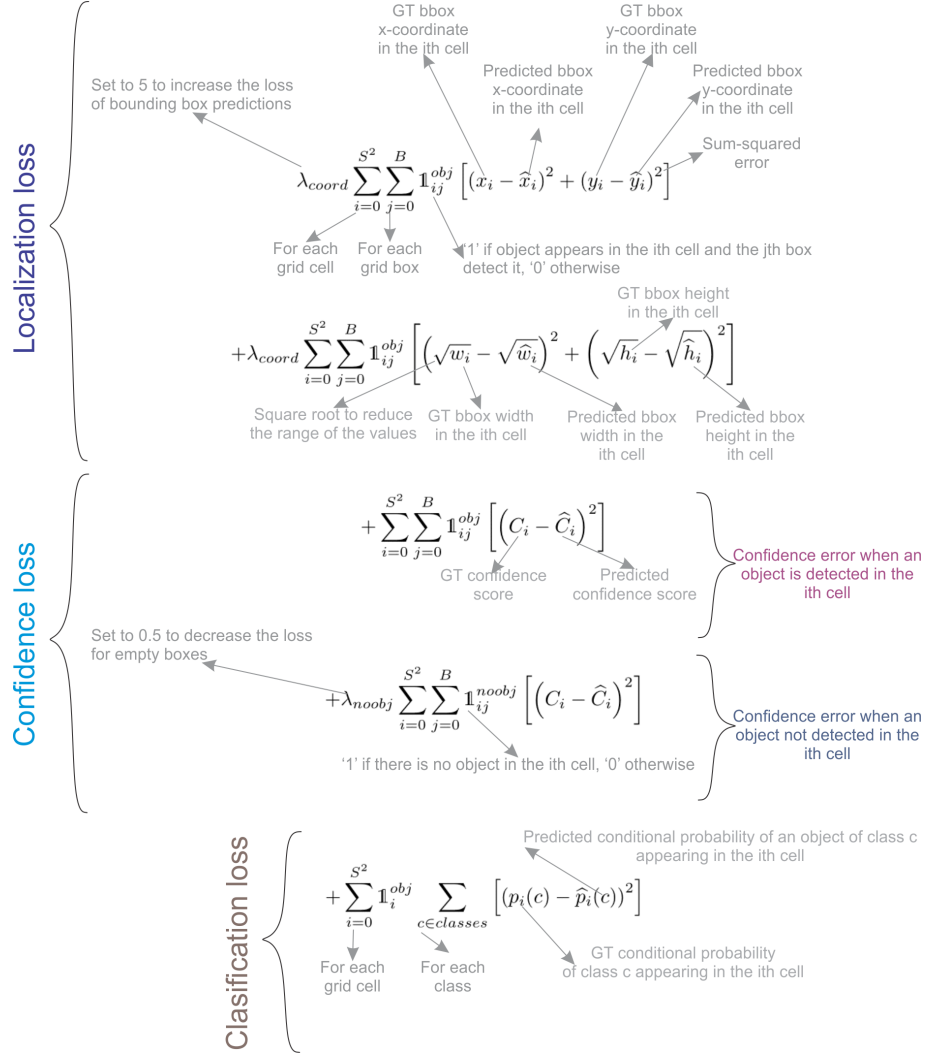 Localization loss
GT bbox
x-coordinate
in the ith cell
GT bbox
y-coordinate
in the ith cell
Predicted bbox
x-coordinate
in the ith cell
Predicted bbox
y-coordinate
in the ith cell
Set to 5 to increase the loss
of bounding box predictions
Sum-squared
error
λ_{coord} \sum_{i=0}^{S^2} \sum_{j=0}^{B} 𝟙_{ij}^{obj} [(x_i - \hat{x}_i)^2 + (y_i - \hat{y}_i)^2]
For each
grid cell
For each
grid box
‘1’ if object appears in the ith cell and the jth box
detect it, ‘0’ otherwise
GT bbox height
in the ith cell
+λ_{coord} \sum_{i=0}^{S^2} \sum_{j=0}^{B} 𝟙_{ij}^{obj} [(\sqrt{w_i} - \sqrt{\hat{w}_i})^2 + (\sqrt{h_i} - \sqrt{\hat{h}_i})^2]
Square root to reduce
the range of the values
GT bbox width
in the ith cell
Predicted bbox
width in the
ith cell
Predicted bbox
height in the
ith cell
Confidence loss
+ \sum_{i=0}^{S^2} \sum_{j=0}^{B} 𝟙_{ij}^{obj} [(C_i - \hat{C}_i)^2]
GT confidence
score
Predicted
confidence score
Confidence error when an
object is detected in the
ith cell
Set to 0.5 to decrease the loss
for empty boxes
+λ_{noobj} \sum_{i=0}^{S^2} \sum_{j=0}^{B} 𝟙_{ij}^{noobj} [(C_i - \hat{C}_i)^2]
‘1’ if there is no object in the ith cell, ‘0’ otherwise
Confidence error when an
object not detected in the
ith cell
Clasification loss
Predicted conditional probability of an object of class c
appearing in the ith cell
+ \sum_{i=0}^{S^2} 𝟙_{i}^{obj} \sum_{c∈classes} [(p_i(c) - \hat{p}_i(c))^2]
For each
grid cell
For each
class
GT conditional probability
of class c appearing in the ith cell